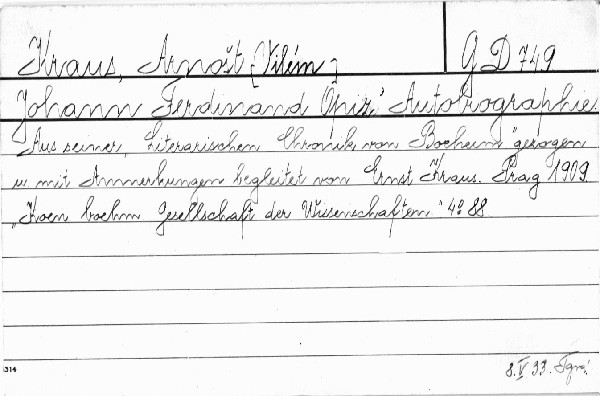 Kraus, Arnošt [Vilém] G D 749
Johann Ferdinand Opiz' Autobiographie.
Aus seiner „Literarischen Chronik von Boeheim" gezogen
u. mit Anmerkungen begleitet von Ernst Kraus. Prag 1909.
„Koen boehm Gesellschaft der Wissenschaften" 4º 88
314 8.V 33.